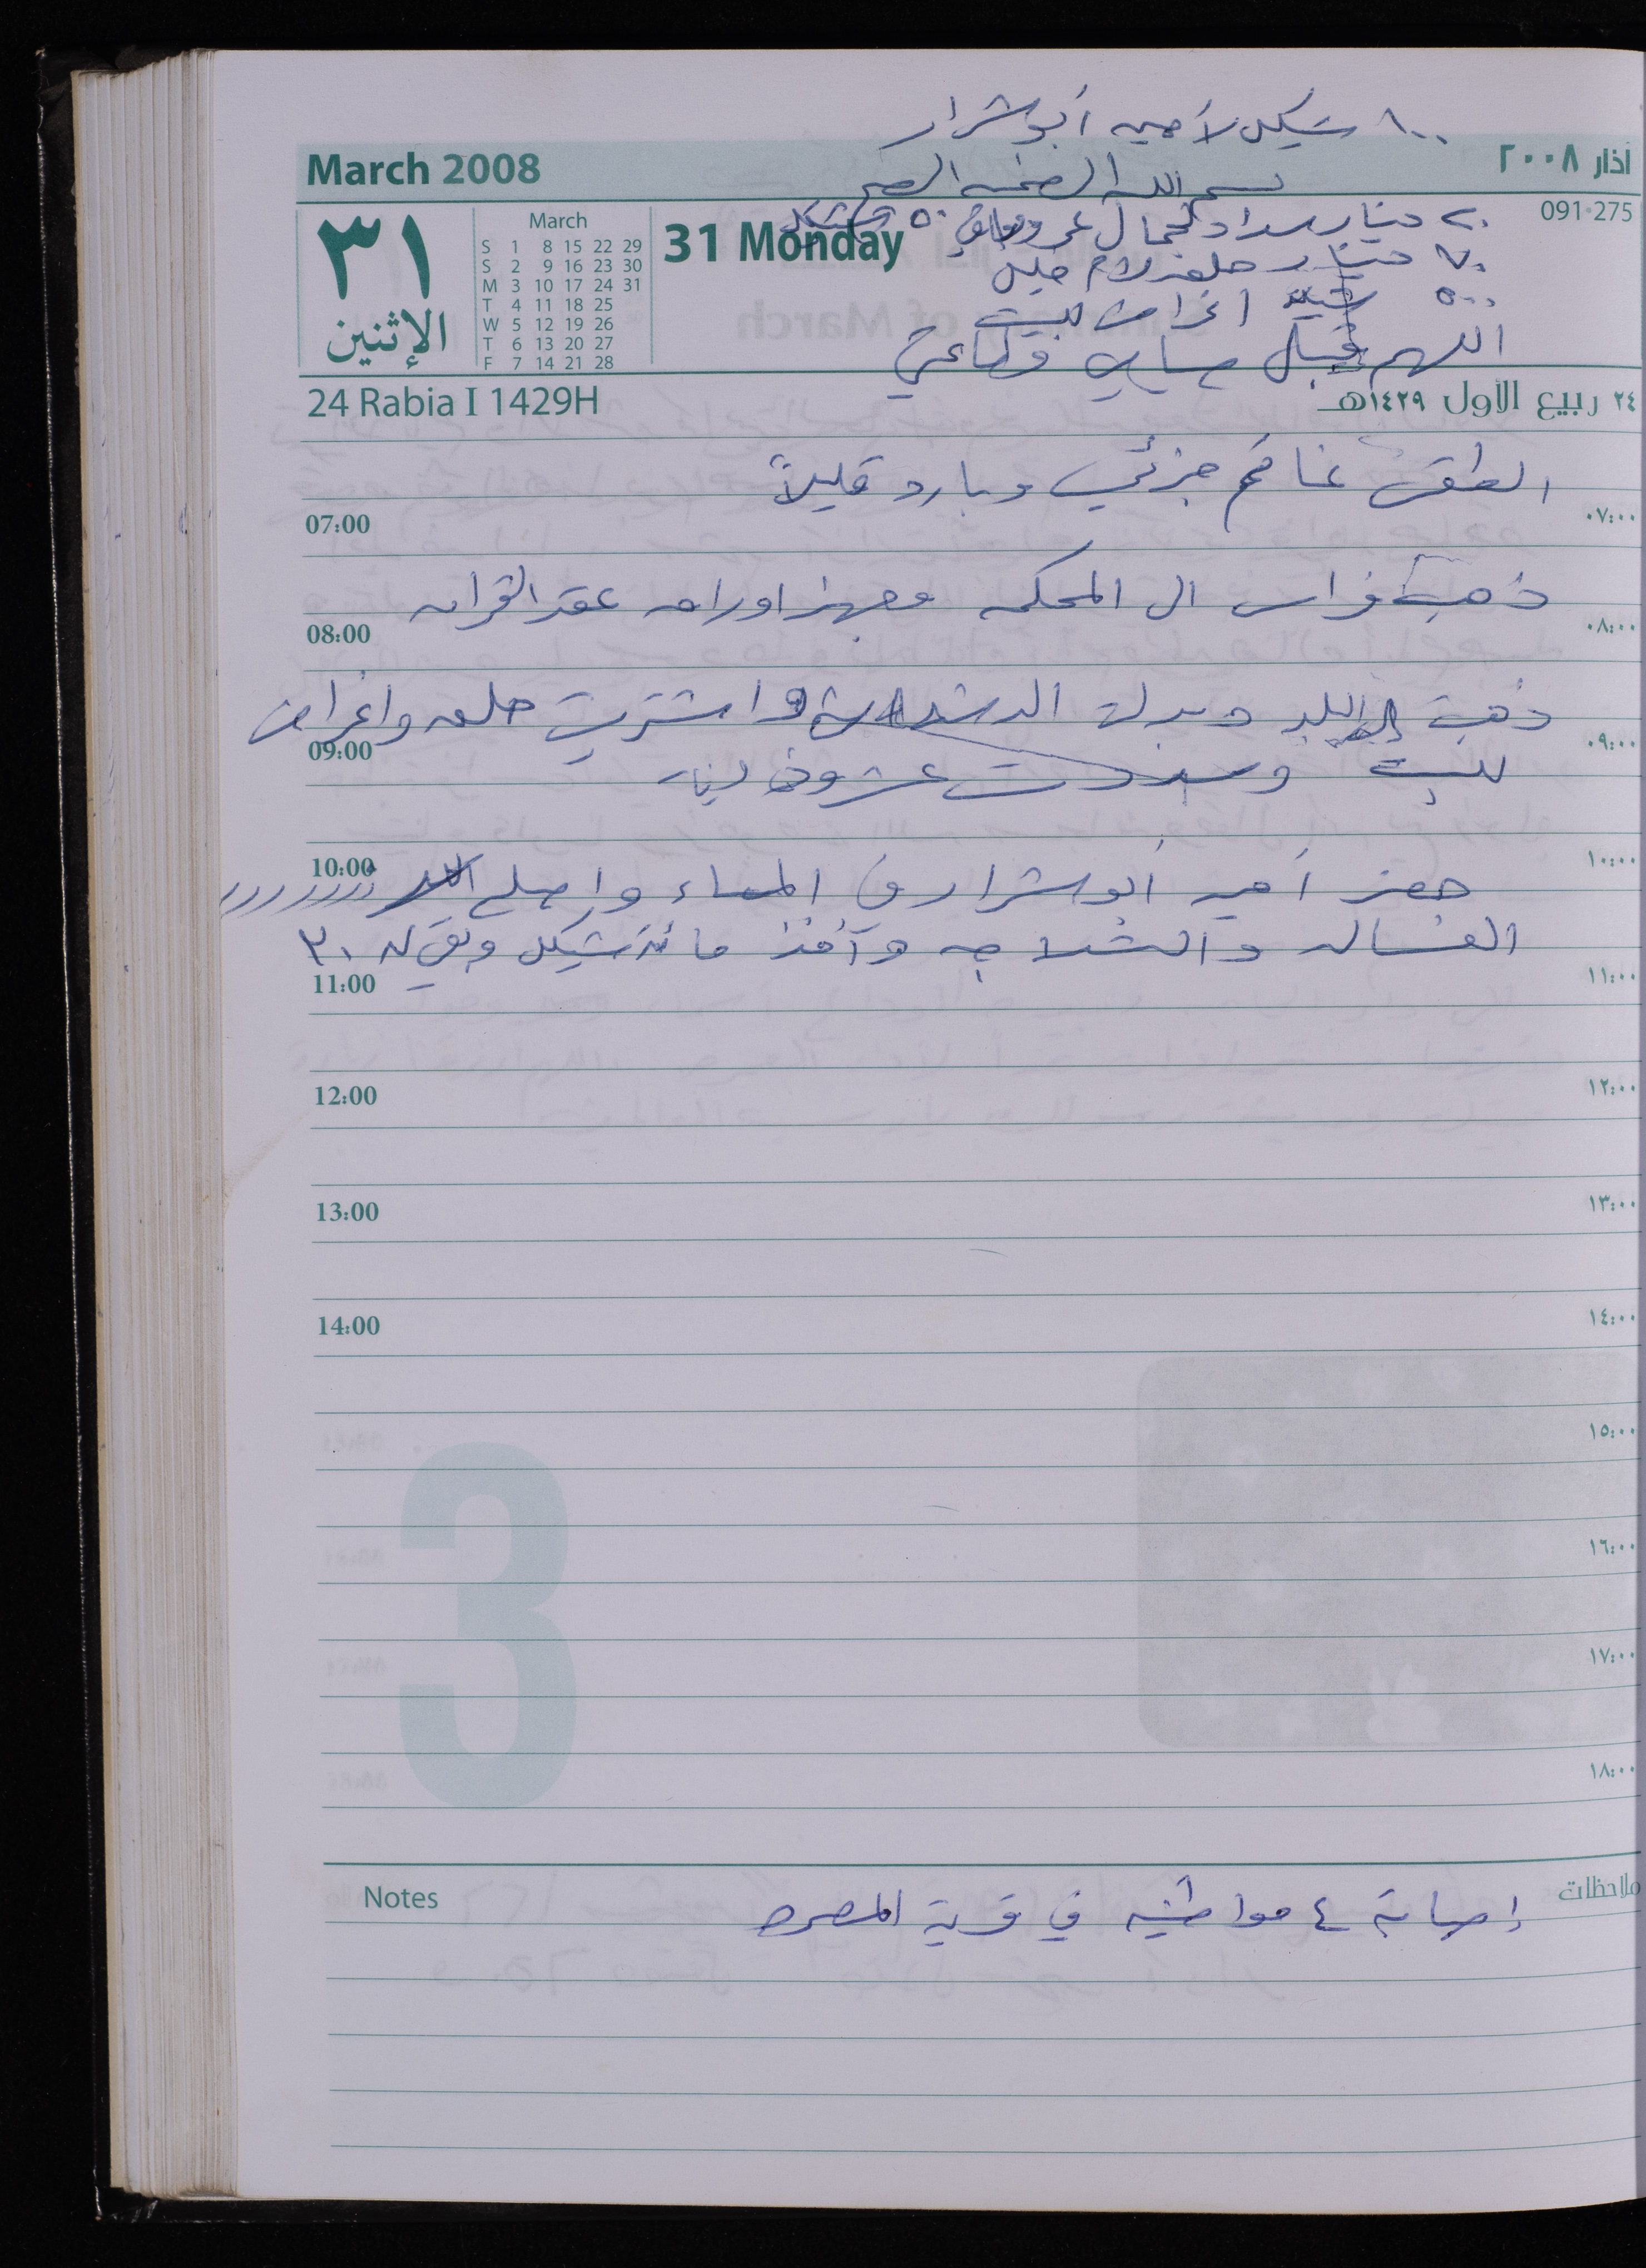 ١٠٠ شيكل لأمين أبو شرار
March 2008
آذار ٢٠٠٨
بسم الله الرحمن الرحيم
091-275
٣١
الإثنين
March
S 1 8 15 22 29
S 2 9 16 23 30
M 3 10 17 24 31
T 4 11 18 25
W 5 12 19 26
T 6 13 20 27
F 7 14 21 28
31 Monday
٢٠ دينار سداد لجمال عمرو وباقي ٥٠ شيكل
٧٠ دينار حلق لأم خليل
٥٠٠ شيكل اغراض للبيت
اللهم تقبل صيامي
24 Rabia I 1429H
٢٤ ربيع الأول ١٤٢٩هـ
الطقس غائم جزئي وبارد قليلاً
07:00 ٠٧:٠٠
ذهب فراس الى المحكمه وجهز اوراق عقد القران
08:00 ٠٨:٠٠
ذهبت البلد واشتريت حلق واغراض
09:00 ٠٩:٠٠
للبيت وسددت عشرون دينار
10:00 ١٠:٠٠
حضر أمين أبو شرار في المساء واصلح
الغساله والثلاجه وأخذ مائة شيكل وبقي له ٣٠
11:00 ١١:٠٠
12:00 ١٢:٠٠
13:00 ١٣:٠٠
14:00 ١٤:٠٠
١٥:٠٠
١٦:٠٠
١٧:٠٠
١٨:٠٠
3
Notes ملاحظات
إصابة ٤ مواطنين في قرية المصدر